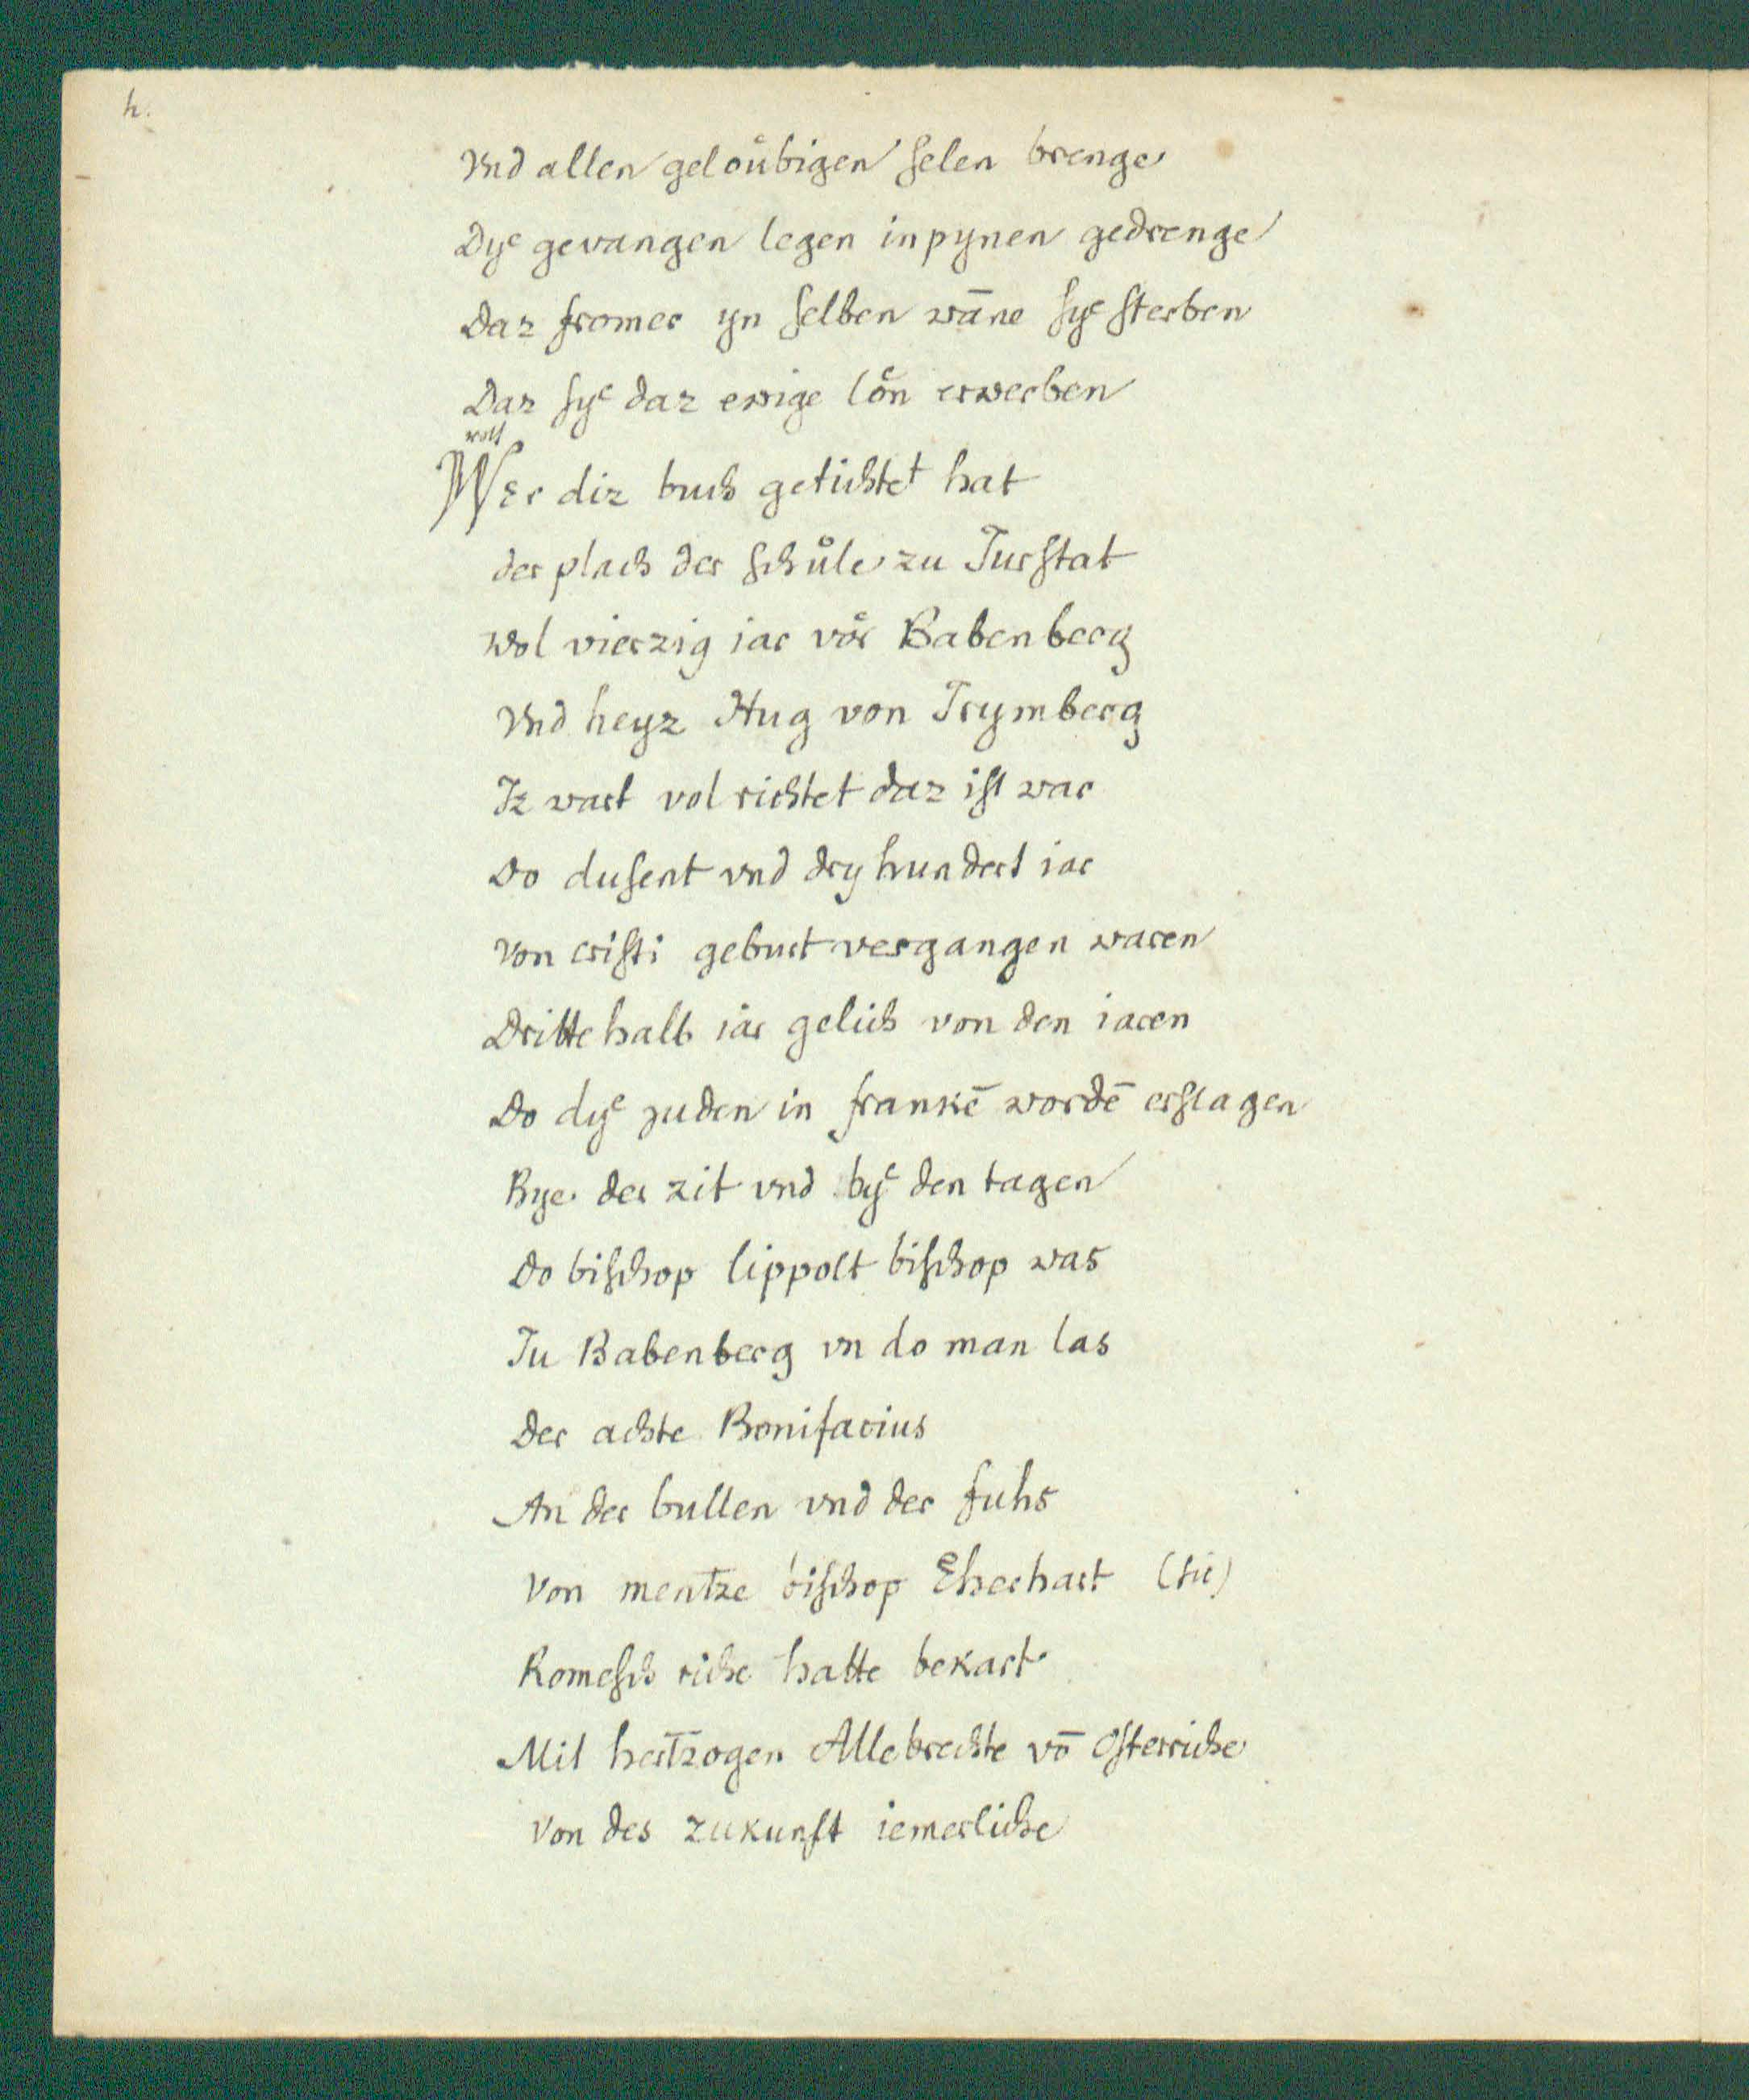 h.
Vnd allen geloůbigen selen brenge
Dyͤ gevangen legen in pynen gedrenge
Daz fromer yn selben wāne syͤ sterben
Daz syͤ daz ewige lon̊ erwerben
rott
Wer diz buch getichtet hat
der plach der schůle zu Turstat
wol vierzig iar vor̊ Babenberg
Vnd heyz Hug von Trymberg
Iz wart vol richtet daz ist war
Do dusent vnd dryhundert iar
Von cristi geburt vergangen waren
Dritte halb iår gelich von den iaren
Do dyͤ juden in frankē wordē erslagen
Bye der zit vnd byͤ den tagen
Do bischop lippolt bischop was
Zu Babenberg vn do man las
Der achte Bonifacius
An der bullen vnd der fuhs
Von mentze bischop Eherhart (sic)
Romesch riche hatte bekart
Mit hertzogen Allebrechte vō Osterriche
Von des zukunft iemerliche